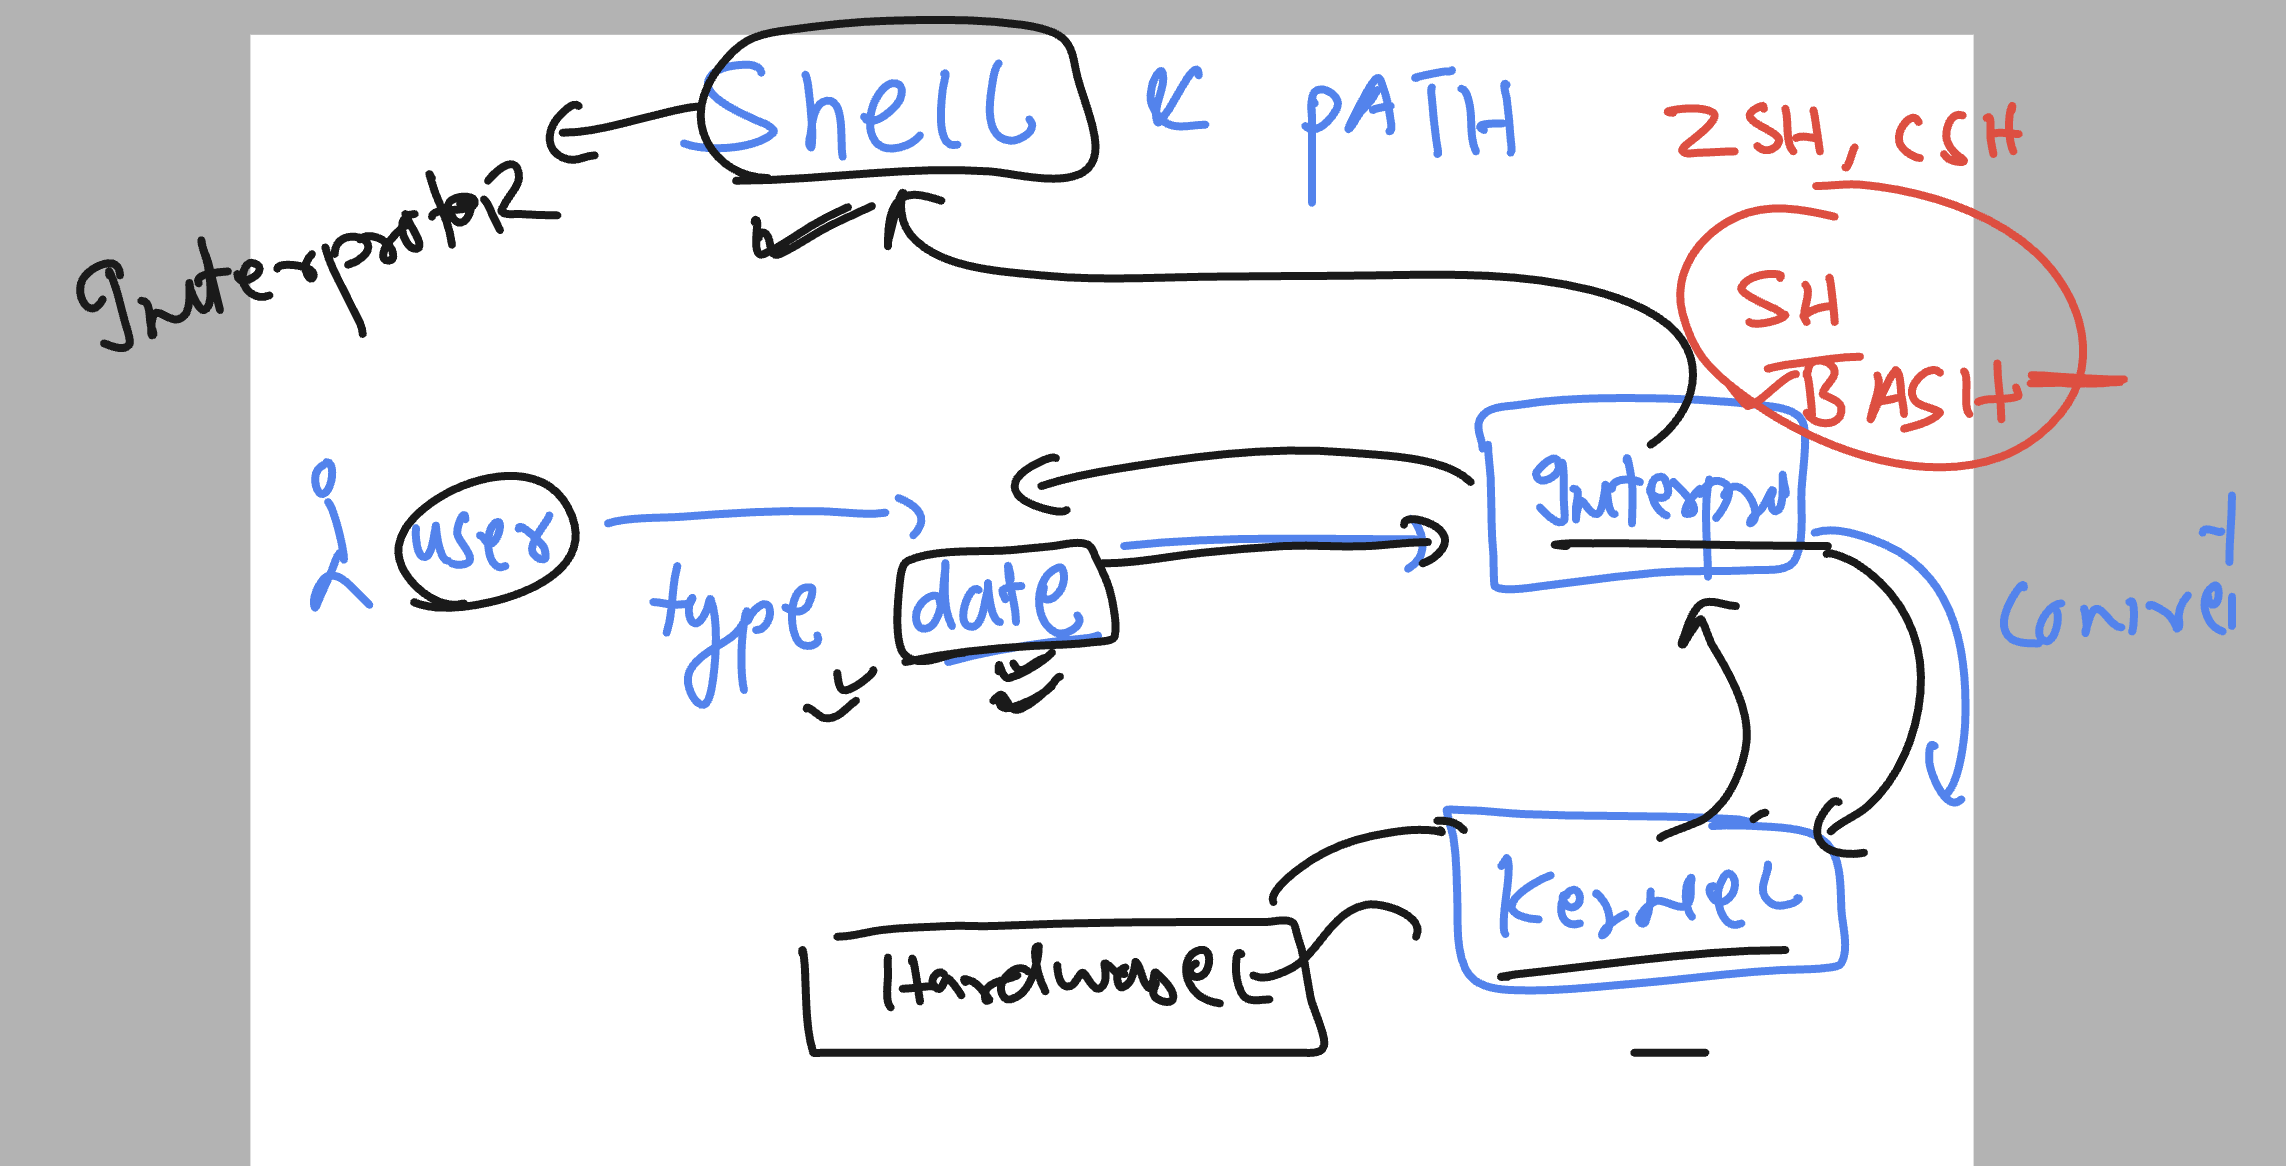 Shell & PATH
ZSH, CSH
Interprotor
SH
BASH
user
type
date
Interpru
Kernel
Hardware